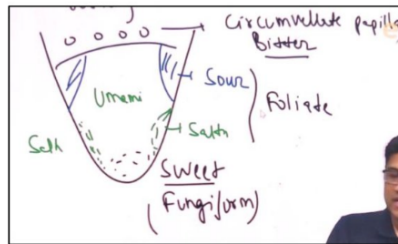 Circumvellate papill
Bitter
Sour
Umami
Foliate
Salt
Salth
Sweet
(Fungiform)